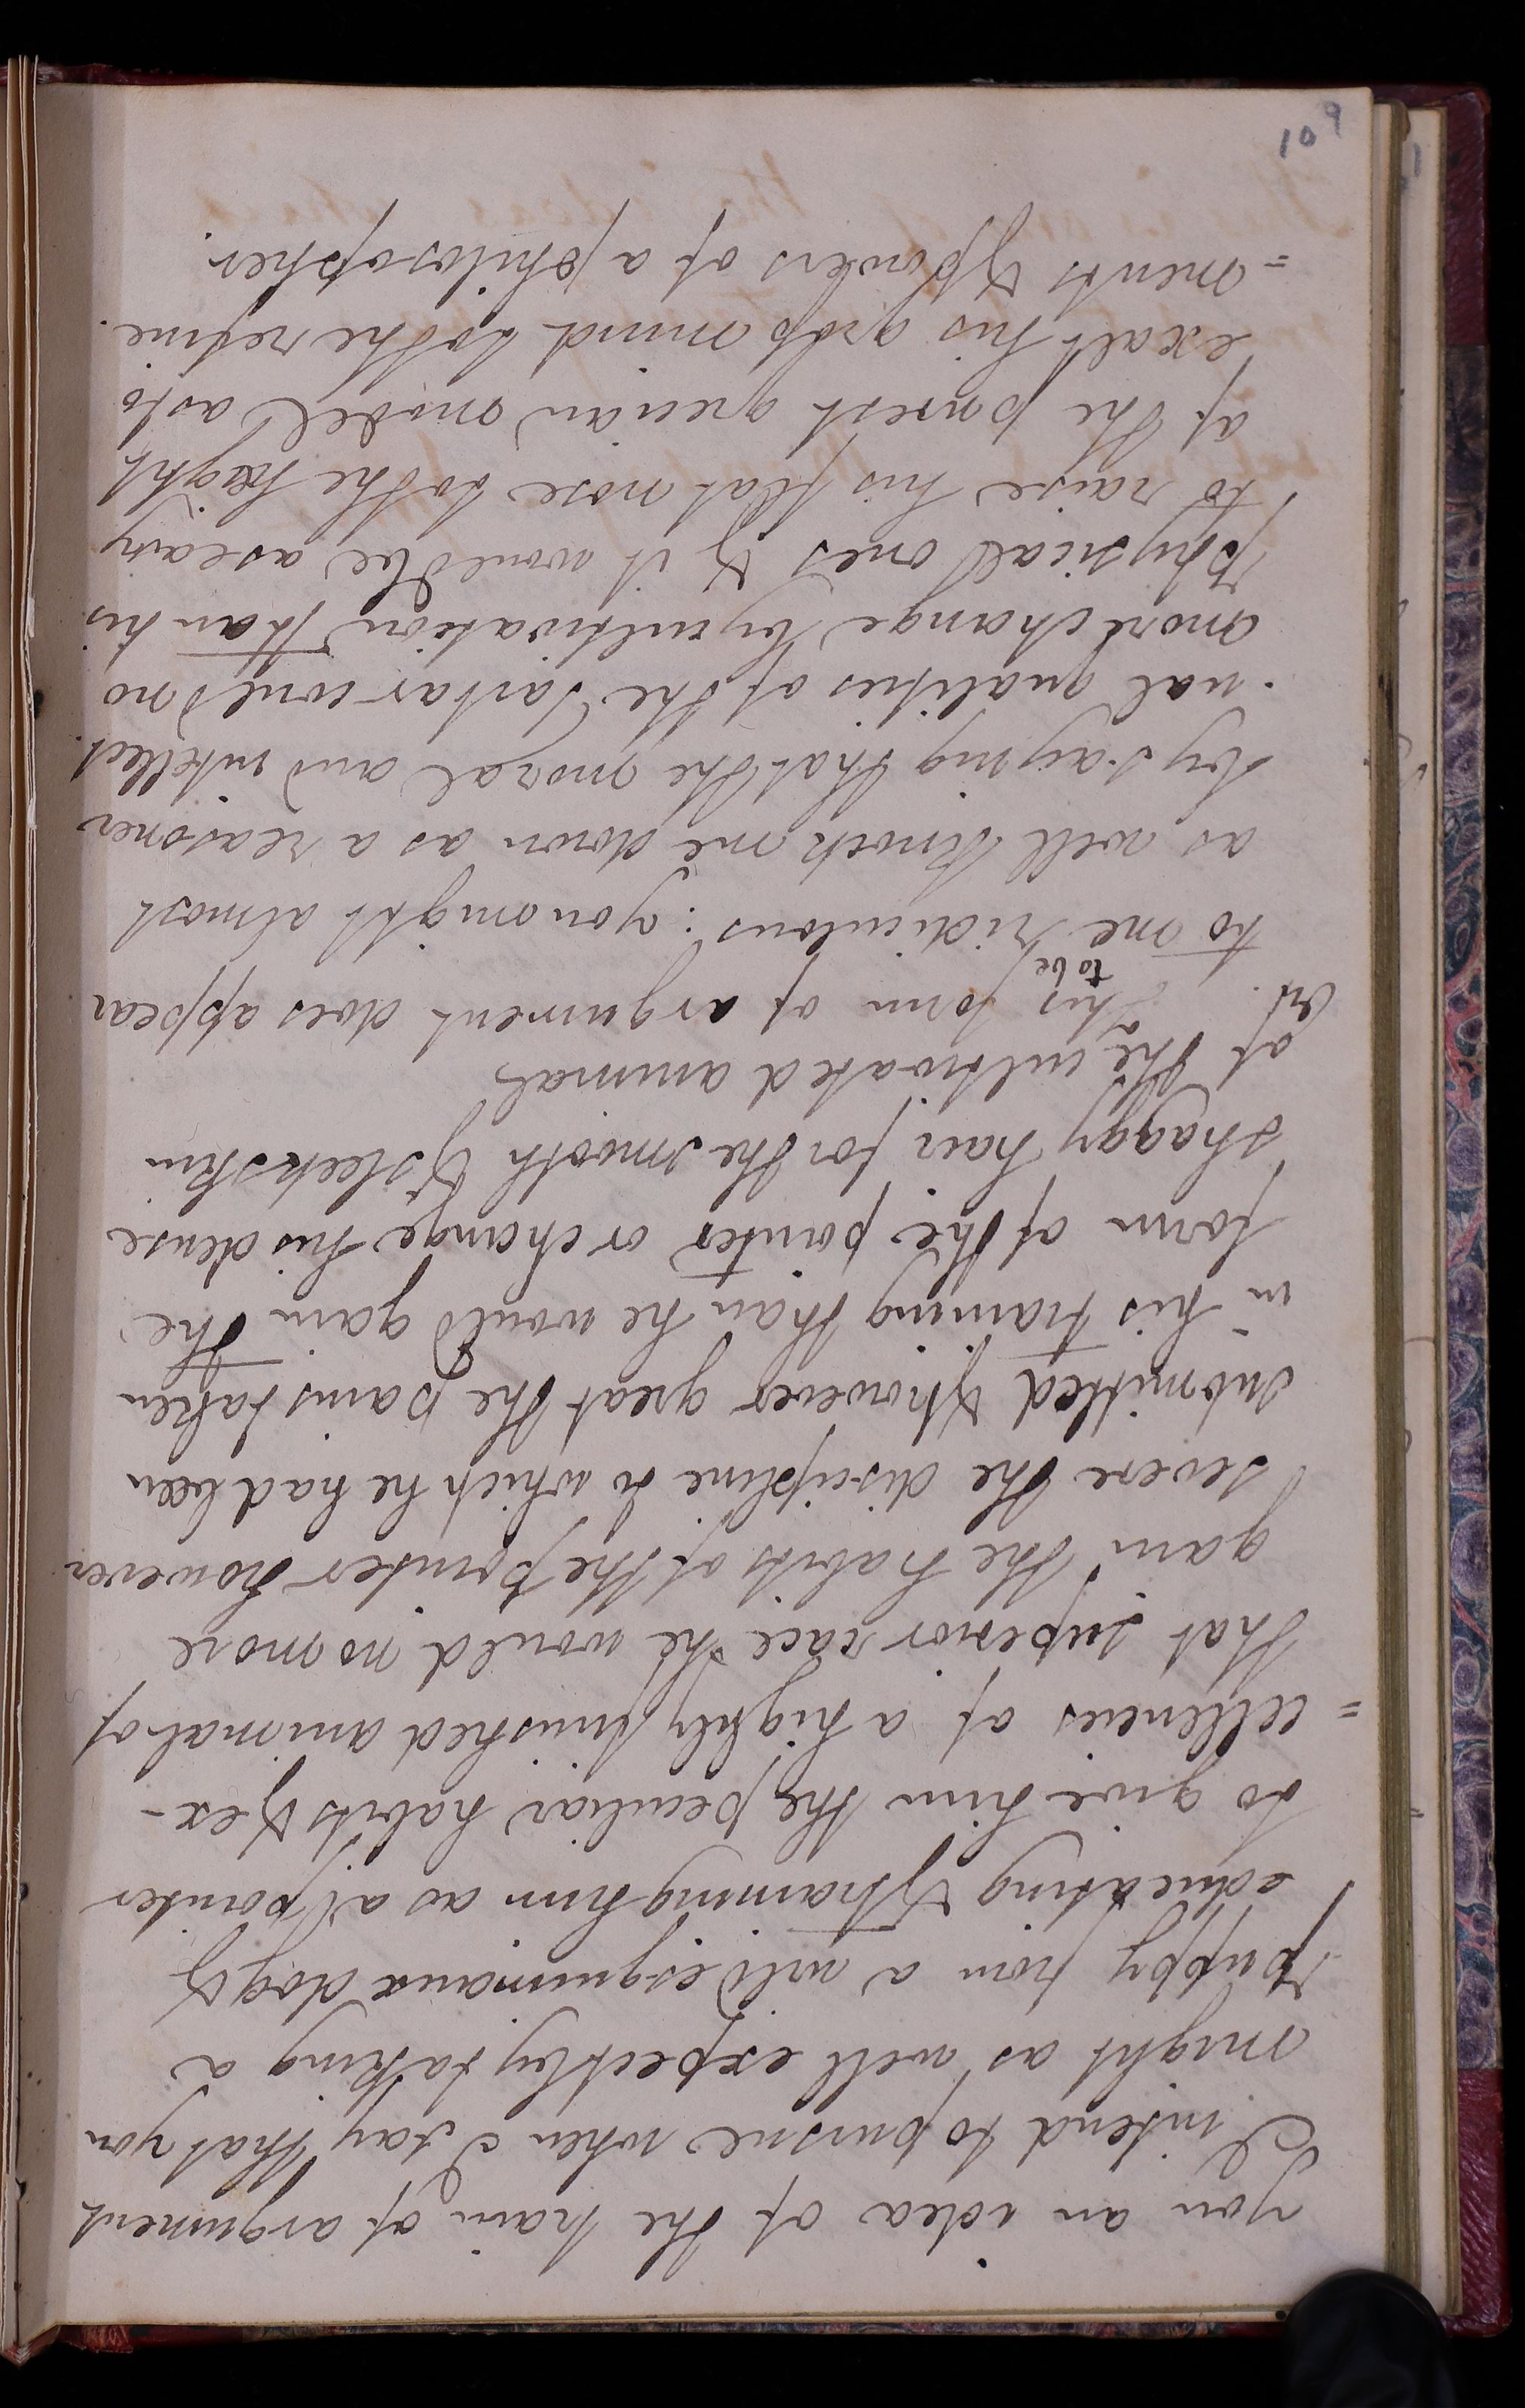 you an idea of the train of argument
I intend to pursue when I say that you
might as well expect by taking a
puppy from a wild esquimaux dog &
educating & training him as a pointer
to give him the peculiar habits & ex-
=cellencies of a highly finished animal of
that superior race. He would no more
gain the habits of the pointer however
severe the discipline to which he had been
submitted & however great the pains taken
in his training than he would gain the
form of the pointer or change his dense
shaggy hair for the smooth & sleek skin
of the cultivated animal.
Crt. This form of argument does appear
to me to be ridiculous: you might almost
as well knock me down as a reasoner
by saying that the moral and intellect
-ual qualities of the Tartar could no
more change by cultivation than his
physical ones & it would be as easy
to raise his flat nose to the height
of the purest grecian model as to
exalt his gross mind to the refine
=ments & powers of a philosopher.
109